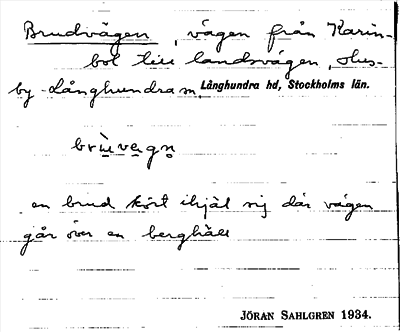 Brudvägen, vägen från Karin-
bol till landsvägen, Hus-
by-Långhundra sn, Långhundra hd, Stockholms län.
en brud kört ihjäl sig där vägen
går över en berghäll
JÖRAN SAHLGREN 1934.